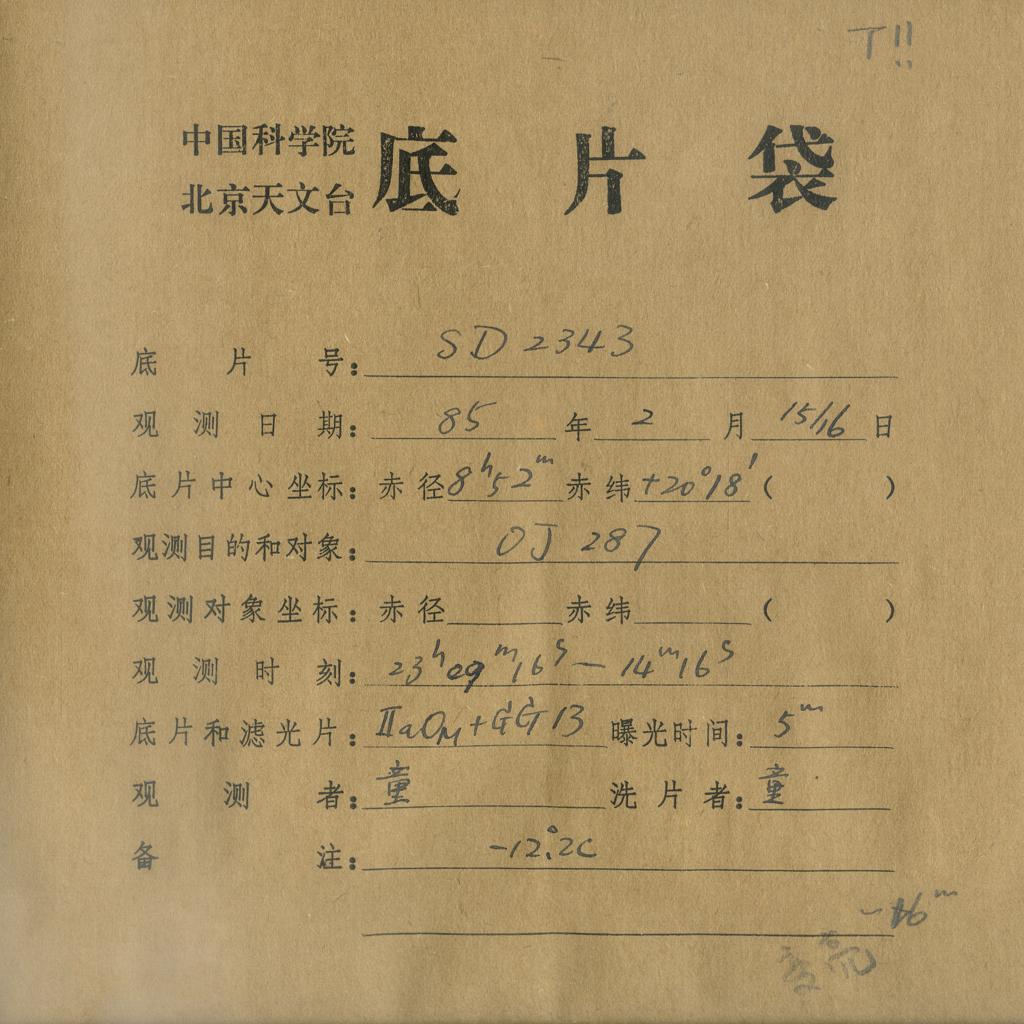 T!!
中国科学院
北京天文台
底片袋
底片号：SD 2343
观测日期：85年2月15/16日
底片中心坐标：赤径8ʰ52ᵐ赤纬+20°18′（ ）
观测目的和对象：OJ 287
观测对象坐标：赤径 赤纬 （ ）
观测时刻：23ʰ09ᵐ16ˢ—14ᵐ16ˢ
底片和滤光片：ⅡaOM+GG13 曝光时间：5ᵐ
观测者：童 洗片者：童
备注：-12°.2C
-16ᵐ